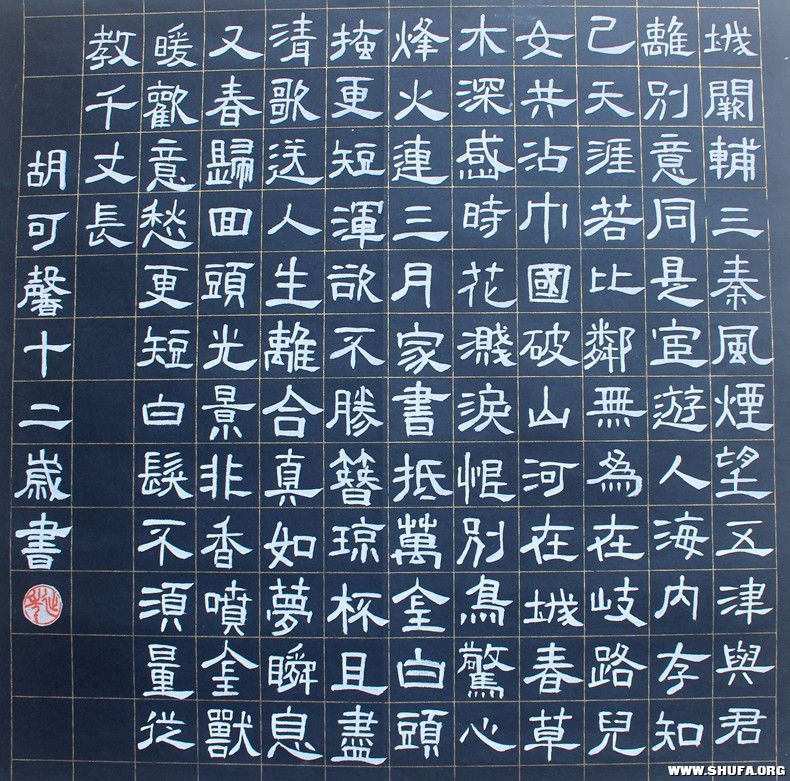 城闕輔三秦風煙望五津與君
離別意同是宦遊人海内存知
己天涯若比鄰無為在岐路兒
女共沾巾國破山河在城春草
木深感時花濺淚恨別鳥驚心
烽火連三月家書抵萬金白頭
掩更短渾欲不勝簪琼杯且盡
清歌送人生離合真如夢瞬息
又春歸回頭光景非香噴金獸
暖歡意愁更短白髮不須量從
教千丈長
胡可馨十二歲書
WWW.SHUFA.ORG